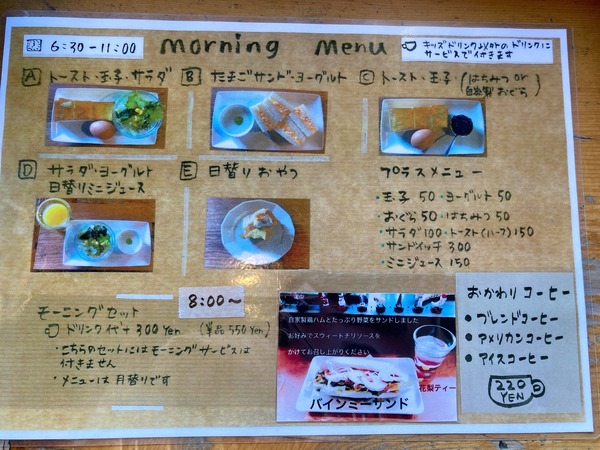 6:30-11:00 morning Menu
キッズドリンク以外のドリンクに
サービスで付きます
A トースト・玉子・サラダ
B たまごサンド・ヨーグルト
C トースト・玉子・(はちみつ or
自家製おぐら)
D サラダ・ヨーグルト
日替りミニジュース
E 日替りおやつ
プラスメニュー
・玉子 50 ・ヨーグルト 50
・おぐら 50 ・はちみつ 50
・サラダ 100 ・トースト(ハーフ) 150
・サンドイッチ 300
・ミニジュース 150
8:00〜
モーニングセット
ドリンク代+300Yen (単品 550Yen)
・こちらのセットにはモーニングサービスは
付きません
・メニューは月替りです
自家製鶏ハムとたっぷり野菜をサンドしました
お好みでスウィートチリソースを
かけてお召し上がりください
花梨ティー
バインミーサンド
おかわりコーヒー
● ブレンドコーヒー
● アメリカンコーヒー
● アイスコーヒー
220
YEN